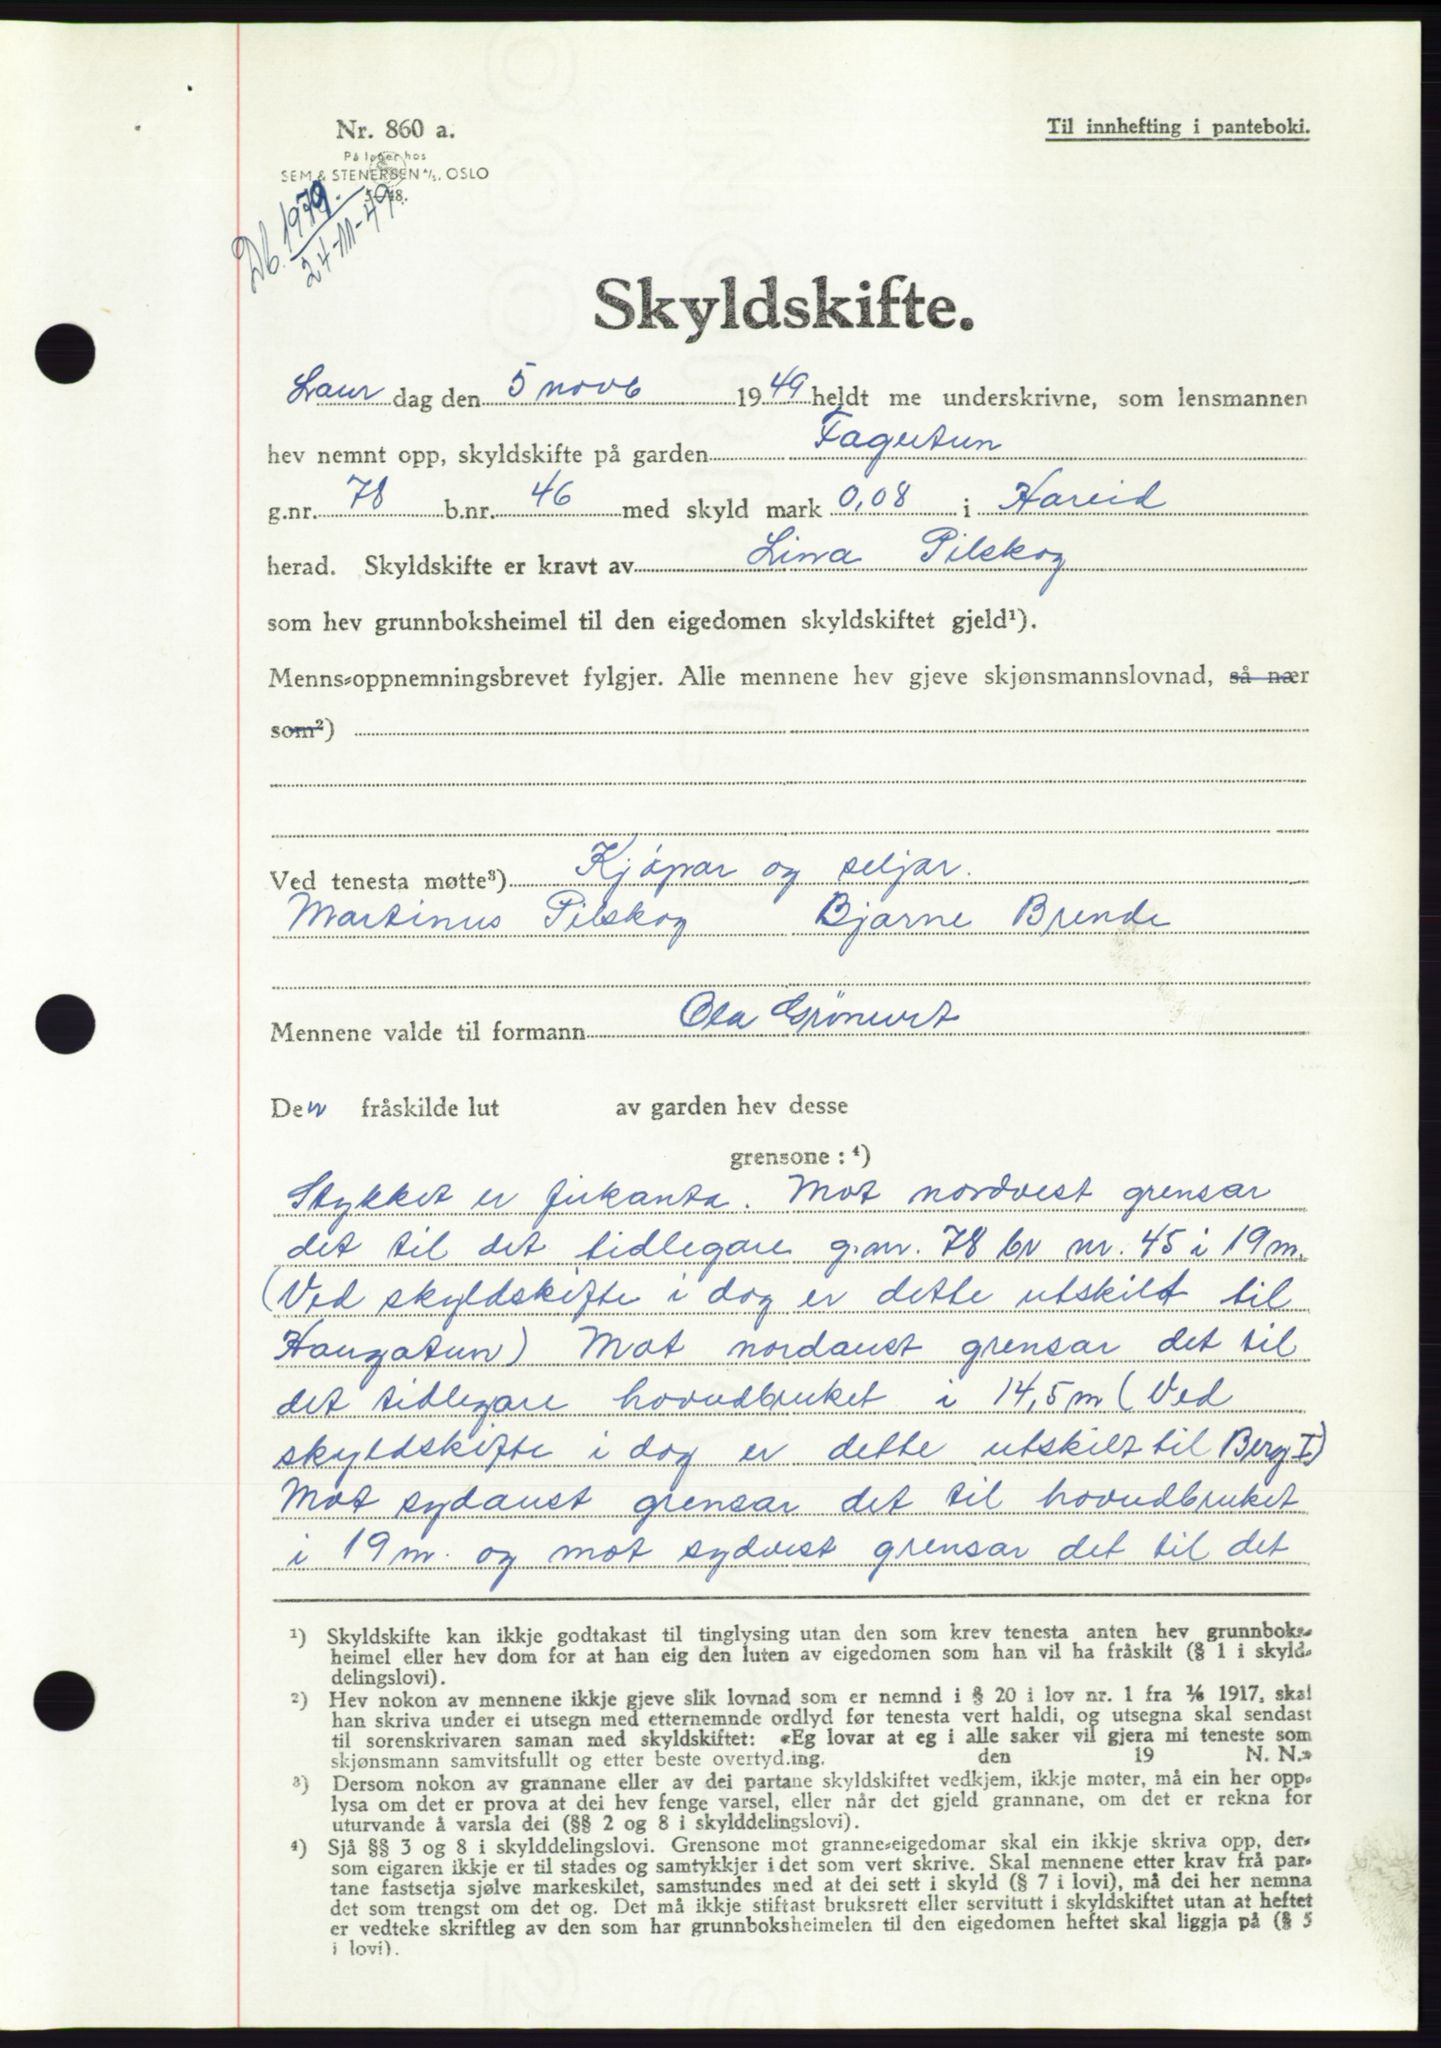 Nr. 860 a.
Til innhefting i panteboki.
På lager hos
SEM & STENERSEN A/S, OSLO
5-48.
Db. 1979.
24-11-49
Skyldskifte.
Laur dag den 5 novb 1949 heldt me underskrivne, som lensmannen
hev nemnt opp, skyldskifte på garden Fagertun
g.nr. 78 b.nr. 46 med skyld mark 0,08 i Hareid
herad. Skyldskifte er kravt av Lina Pilskog
som hev grunnboksheimel til den eigedomen skyldskiftet gjeld¹).
Menns-oppnemningsbrevet fylgjer. Alle mennene hev gjeve skjønsmannslovnad, så nær
som²)
Ved tenesta møtte³) Kjøpar og seljar.
Martinus Pilskog Bjarne Brende
Mennene valde til formann Ola Grönevet
Den fråskilde lut av garden hev desse
grensone : ⁴)
Stykket er firkanta. Mot nordvest grensar
det til det tidlegare g.nr. 78 br nr. 45 i 19 m.
(Ved skyldskifte i dag er dette utskilt til
Haugatun) Mot nordaust grensar det til
det tidlegare hovudbruket i 14,5 m (Ved
skyldskifte i dag er dette utskilt til Berg I)
Mot sydaust grensar det til hovudbruket
i 19 m. og mot sydvest grensar det til det
¹) Skyldskifte kan ikkje godtakast til tinglysing utan den som krev tenesta anten hev grunnboks-
heimel eller hev dom for at han eig den luten av eigedomen som han vil ha fråskilt (§ 1 i skyld-
delingslovi).
²) Hev nokon av mennene ikkje gjeve slik lovnad som er nemnd i § 20 i lov nr. 1 fra 1/6 1917, skal
han skriva under ei utsegn med etternemnde ordlyd før tenesta vert haldi, og utsegna skal sendast
til sorenskrivaren saman med skyldskiftet: «Eg lovar at eg i alle saker vil gjera mi teneste som
skjønsmann samvitsfullt og etter beste overtyd.ing. den 19 N. N.»
³) Dersom nokon av grannane eller av dei partane skyldskiftet vedkjem, ikkje møter, må ein her opp-
lysa om det er prova at dei hev fenge varsel, eller når det gjeld grannane, om det er rekna for
uturvande å varsla dei (§§ 2 og 8 i skylddelingslovi).
⁴) Sjå §§ 3 og 8 i skylddelingslovi. Grensone mot granne-eigedomar skal ein ikkje skriva opp, der-
som eigaren ikkje er til stades og samtykkjer i det som vert skrive. Skal mennene etter krav frå par-
tane fastsetja sjølve markeskilet, samstundes med at dei sett i skyld (§ 7 i lovi), må dei her nemna
det som trengst om det og. Det må ikkje stiftast bruksrett eller servitutt i skyldskiftet utan at heftet
er vedteke skriftleg av den som har grunnboksheimelen til den eigedomen heftet skal liggja på (§ 5
i lovi).